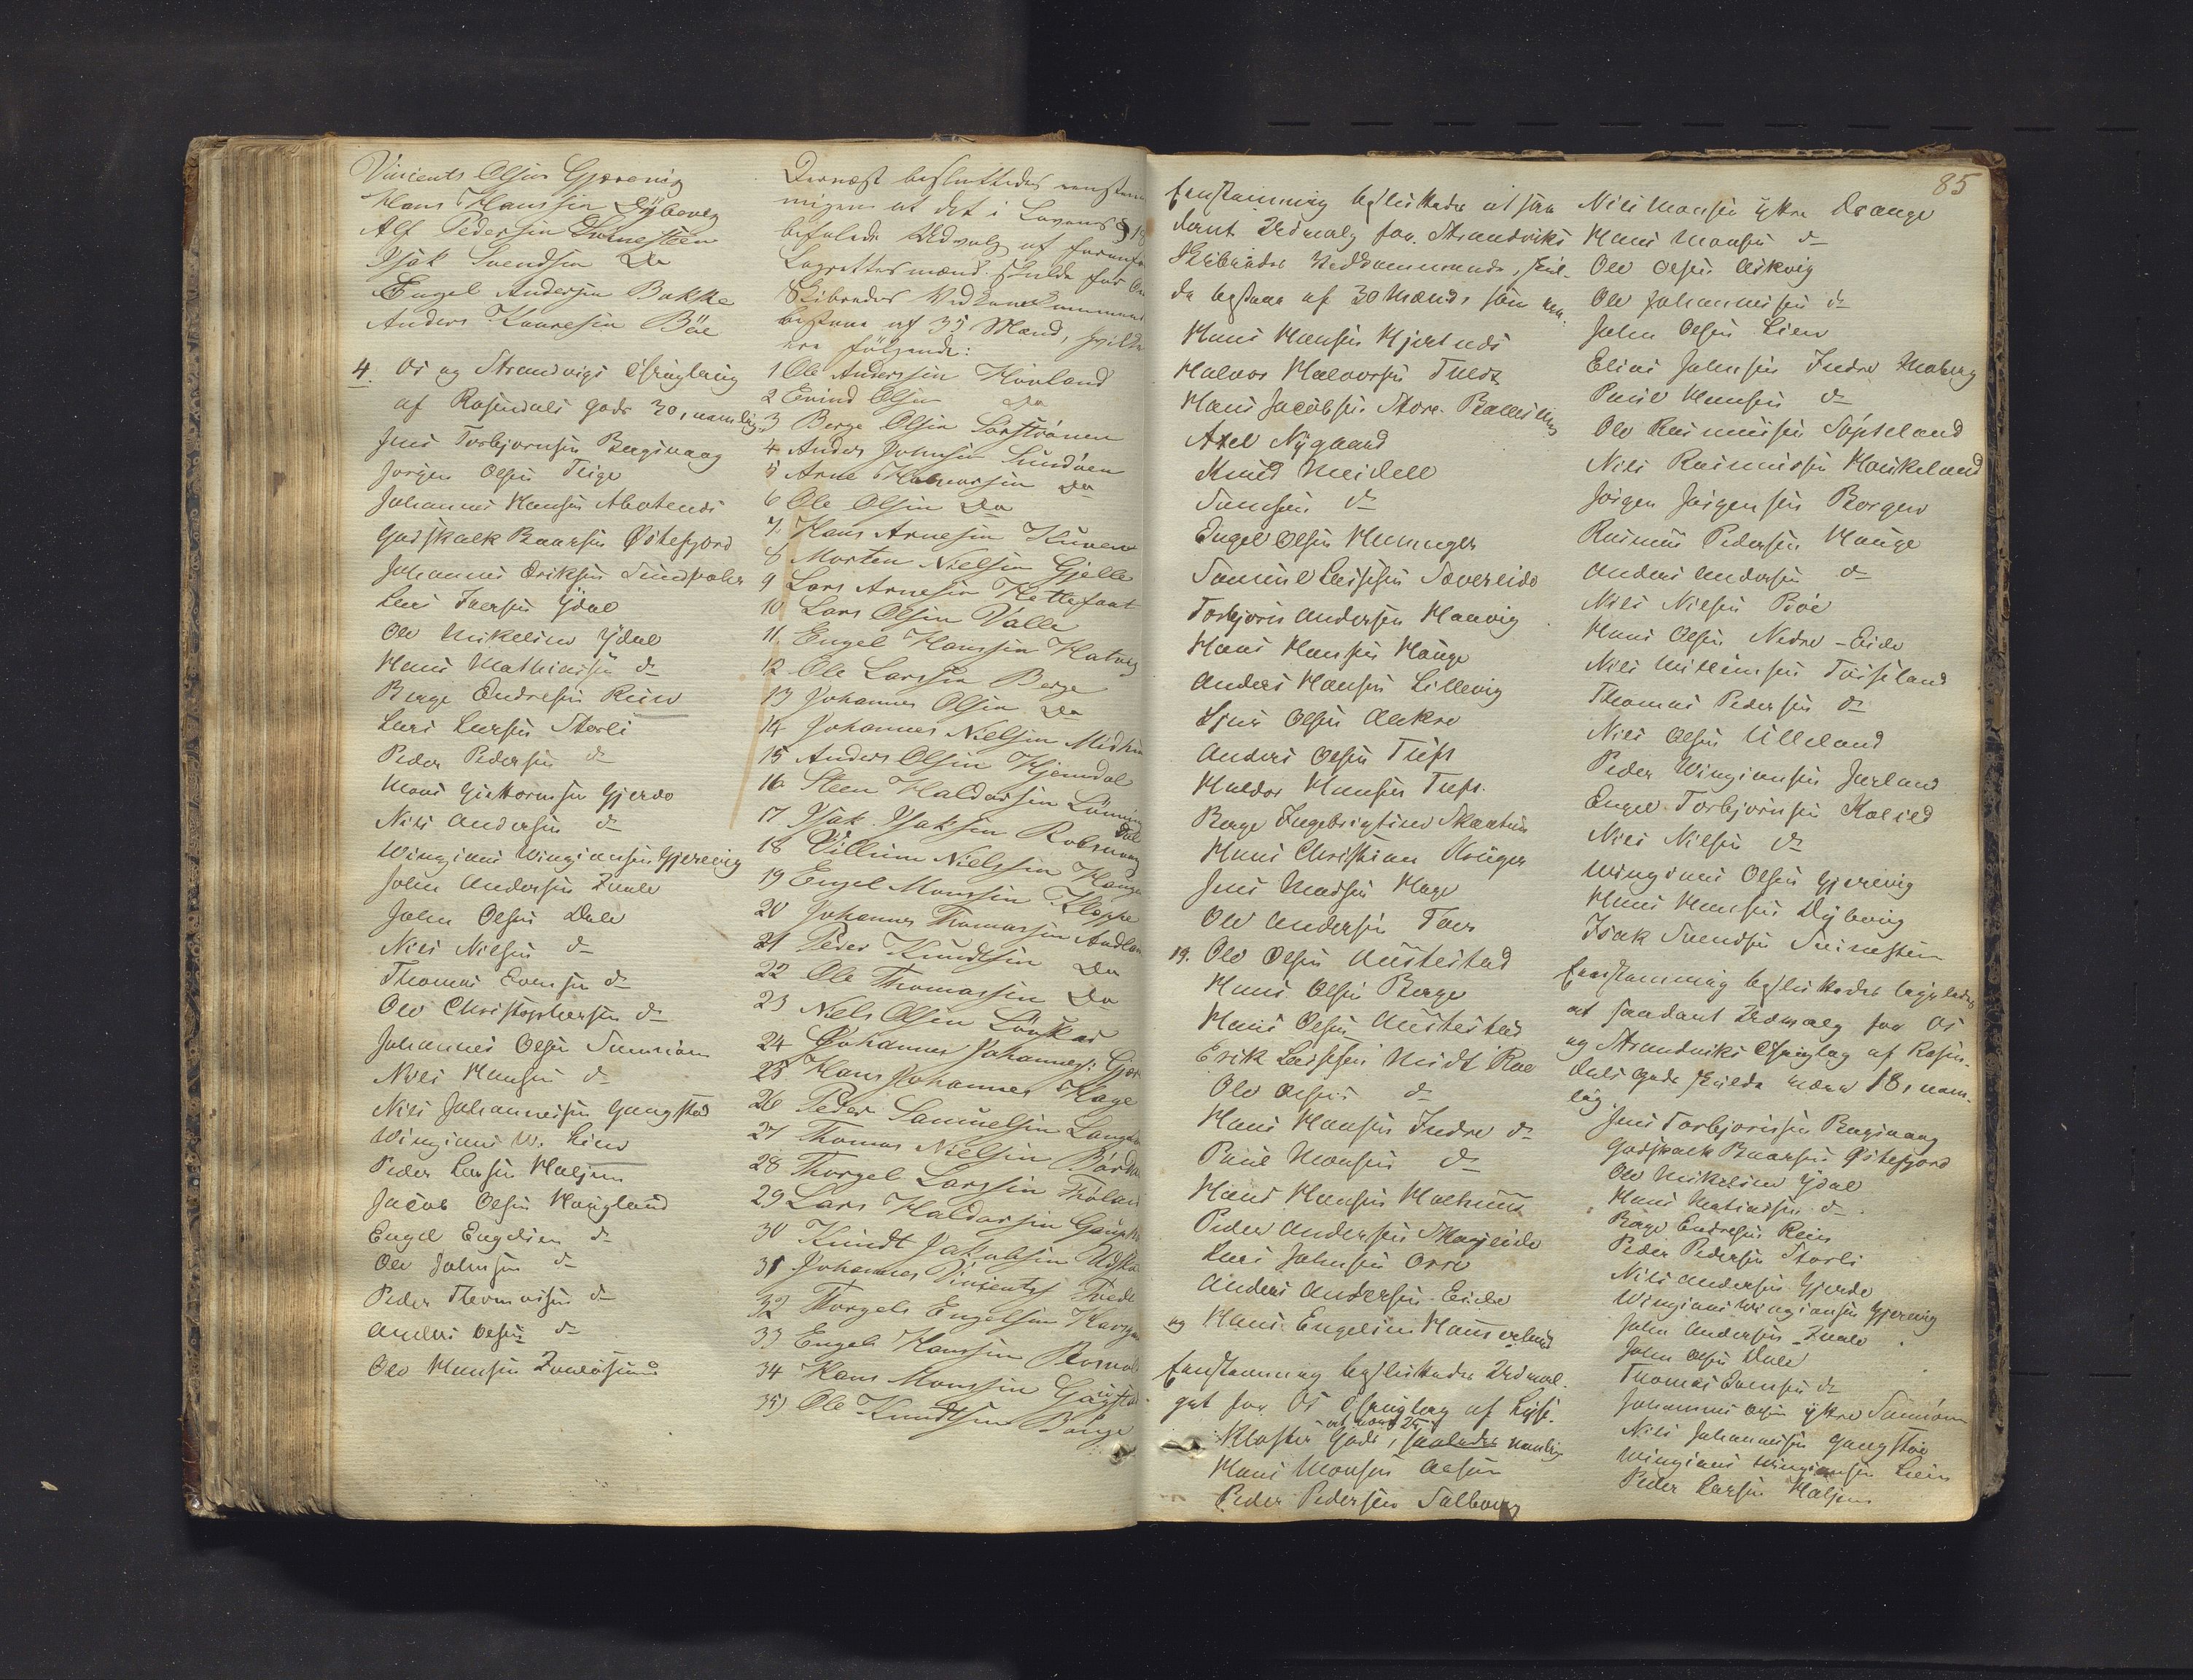 Vincents Olsen Gjerevig
Hans Hansen Dybevig
Alf Pedersen Svinesteen
Isak Svendsen Do
Engel Andersen Bakke
Anders Knuresen Böe
4. Os og Strandvigs Thinglaug
af Rosendals Gods 30, namlig:
Jens Torbjørnsen Bugsvaag
Jørgen Olsen Teige
Johannes Hansen
Godskalk Baarsen Østefjord
Johannes Eriksen
Lars Iversen Ydal
Ole Mikelsen Ydal
Hans Mathiassen do
Børge Endresen Rein
Lars Larsen Storli
Peder Pedersen do
Mons Guttormsen Gjerde
Nils Andersen do
Wingians Wingiansen Gjerevig
John Andersen
John Olsen Dale
Nils Nilsen do
Thomas Evensen do
Ole Christophersen do
Johannes Olsen Samnøen
Nils Hansen do
Nils Johannessen Gangstøe
Wingians W. Lien
Peder Larsen Haljem
Jacob Olsen Hougland
Engel Engelsen do
Ole Johnsen do
Peder Thomassen do
Anders Olsen do
Ole Hansen
Dernæst besluttedes eenstem
migen at det i Lovens § 18
befalede Udvalg af
Lagrettesmænd skulde for Os
Skibredes Vedkommende
bestaae af 35 Mænd, hvilke
ere følgende:
1 Ole Anderssen Hovland
2 Eivind Olsen Do
3 Berge Olsen Sørströnen
4 Anders Johnsen Sundöen
5 Arne Halvorsen Do
6 Ole Olsen Do
7. Hans Arnesen Kuven
8 Morten Nielsen Gjelle
9 Lars Arnesen Hettefaat
10 Lars Olsen Valle
11. Engel Hansen Hatvig
12 Ole Larsen Berge
13 Johannes Olsen Do
14 Johannes Nielsen
15 Anders Olsen Hjemdal
16 Steen Haldorsen
17 Isak Isaksen
18 Villum Nielsen Hauge
19 Engel Monssen Kloppe
20 Johannes Thomassen
21 Peder Knudtsen Do
22 Ole Thomassen Do
23 Niels Olsen
24 Johannes Johannes:
25 Hans Johannes Hage
26 Peder Samuelsen
27 Thomas Nielsen
28 Thorgel Larssen
29 Lars Haldorsen
30 Knudt Jakobsen
31 Johannes Vincents
32 Thorgels Engelsen
33 Engels Hansen
34 Hans Monssen
35) Ole Knudtsen Bönge
85
Eenstemmig besluttedes at saa
dant Udvalg for Strandviks
Skibredes Vedkommende, skul-
de bestaae af 30 Mænd, som ere:
Hans Hansen Hjertnes
Halvor Halvorsen Tuft
Hans Jacobsen Store Ballesheim
Axel Nygaard
Knud Meidell
Samsen do
Engel Olsen Huminger
Samuel Lassesen Sævereide
Torbjørn Andersen Haavig
Hans Hansen Hauge
Anders Hansen Lillevig
Sjur Olsen Aakre
Anders Olsen Tuft
Haldor Hansen Tuft
Berge Ingebrigtsen Skaatun
Hans Christian Krüger
Jens Madsen Hage
Ole Andersen
19. Ole Olsen Austestad
Hans Olsen Berge
Hans Olsen Austestad
Erik Lassesen Midt Røe
Ole Olsen do
Hans Hansen Indre do
Poul Monsen do
Hans Hansen
Peder Andersen Skogseide
Lars Johnsen Orre
Anders Andersen Eide
og Hans Engelsen
Eenstemmig besluttedes Udval-
get for Os Thinglag af Lyse-
at være 25
Kloster Gods, saaledes namlig
Hans Monsen
Peder Pedersen Solbærg
Nils Monsen Ytre Drange
Hans Monsen do
Ole Olsen Askvig
Ole Johannesen do
John Olsen Lien
Elias Johnsen Indre Moberg
Poul Hansen do
Ole Rasmussen Søfteland
Nils Rasmussen Haukeland
Jørgen Jørgensen Borgen
Rasmus Pedersen Hauge
Anders Andersen do
Nils Nilsen Bøe
Hans Olsen Nedre-Eide
Nils Willumsen Tøsseland
Thomas Pedersen do
Nils Olsen Ulleland
Peder Wingiansen Jarland
Engel Torbjørnsen Kolseid
Nils Nilsen do
Wingians Olsen Gjerevig
Hans Hansen Dybevig
Isak Svendsen Svinesten
Eenstemmig besluttedes ligeledes
at saadant Udvalg for Os
og Strandviks Thinglag af Rosen-
dals Gods skulde være 18, nam-
lig
Jens Torbjørnsen Bugsvaag
Godskalk Baarsen Østefjord
Ole Mikelsen Ydal
Hans Matiassen do
Børge Endresen Rein
Peder Pedersen Storli
Nils Andersen Gjerde
Wingians Wingiansen Gjerevig
John Andersen
John Olsen Dale
Thomas Evensen do
Johannes Olsen Ytre Samnøen
Nils Johannessen Gangstøe
Wingians Wingiansen Lien
Peder Larsen Haljem